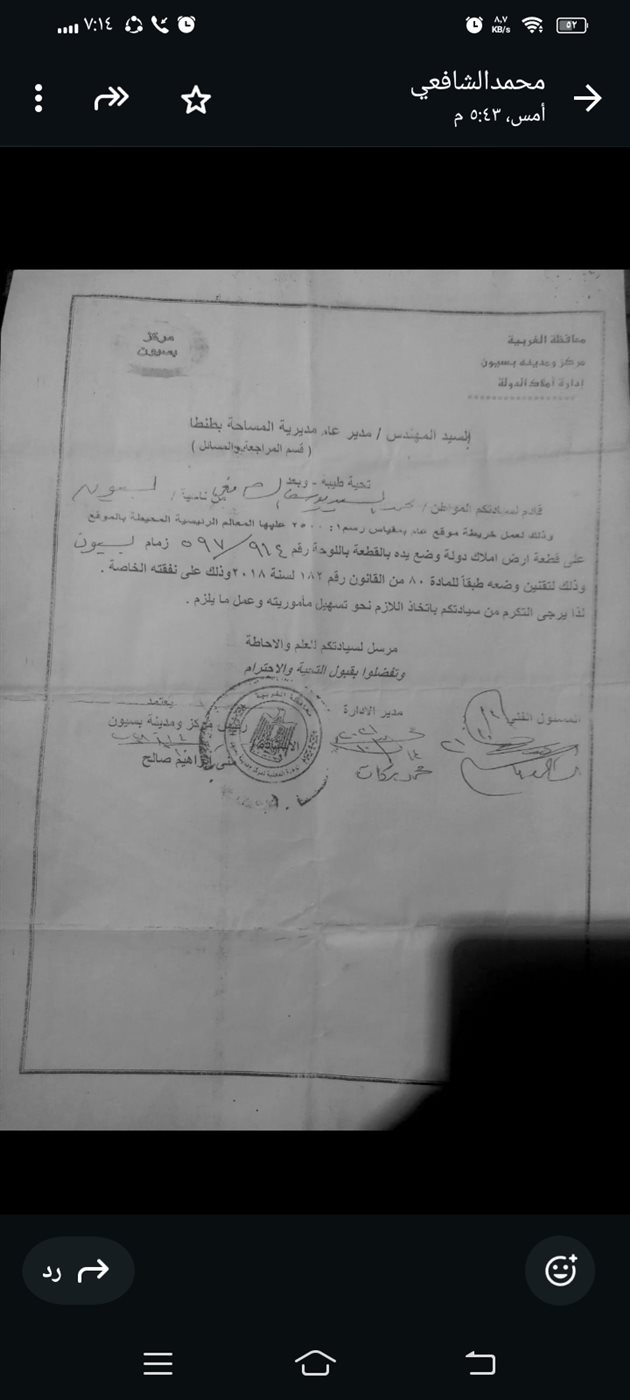 ٧:١٤
٨,٧ KB/s
٥٢
محمدالشافعي
أمس، ٥:٤٣ م
محافظة الغربية
مركز ومدينه بسيون
إدارة أملاك الدولة
مركز
بسيون
السيد المهندس / مدير عام مديرية المساحة بطنطا
( قسم المراجعة والمسائل )
تحية طيبه - وبعد
قادم لسيادتكم المواطن / محمد السيد يوسف الشافعي من ناحية / بسيون
وذلك لعمل خريطة موقع عام بمقياس رسم ١ : ٢٥٠٠ عليها المعالم الرئيسية المحيطة بالموقع
على قطعة ارض املاك دولة وضع يده بالقطعة باللوحة رقم ٩١٤/٥٩٧ زمام بسيون
وذلك لتقنين وضعه طبقاً للمادة ٨٠ من القانون رقم ١٨٢ لسنة ٢٠١٨ وذلك على نفقته الخاصة .
لذا يرجى التكرم من سيادتكم باتخاذ اللازم نحو تسهيل مأموريته وعمل ما يلزم .
مرسل لسيادتكم للعلم والاحاطة
وتفضلوا بقبول التحية والاحترام
المسئول الفني
مدير الادارة
محمد بركات
يعتمد
رئيس مركز ومدينة بسيون
ابراهيم صالح
محافظة الغربية
رد